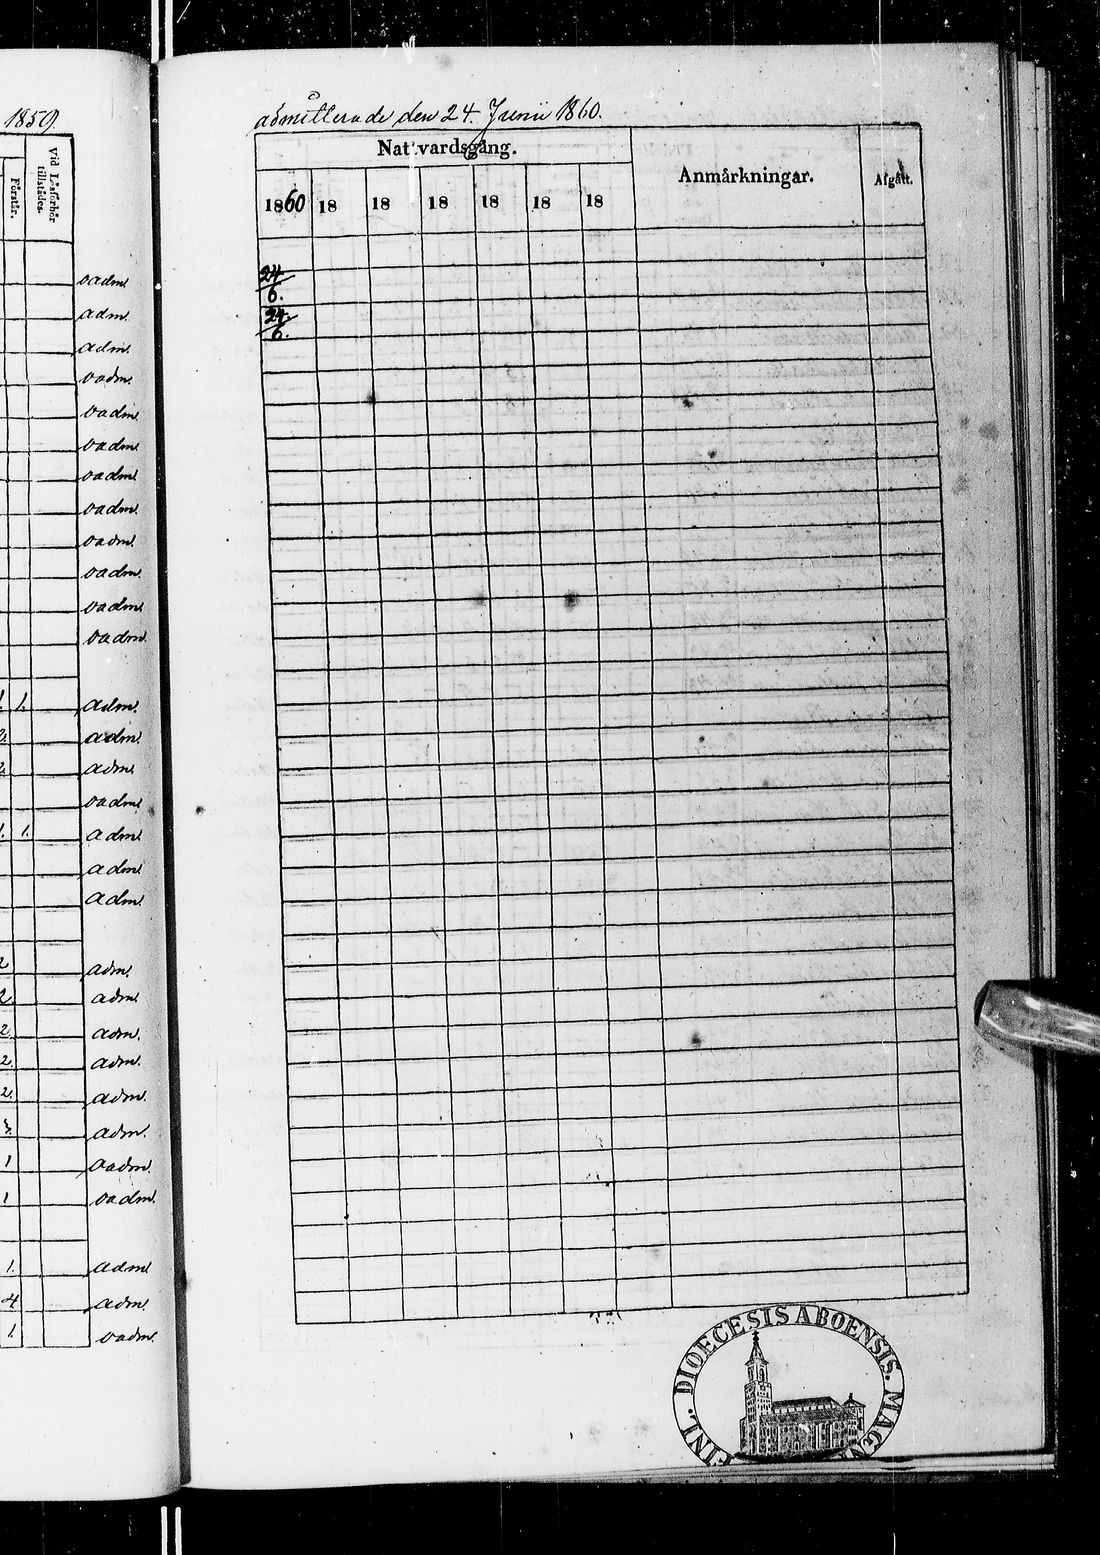 1859.
Vid Läsförhör
tillstädes.
Förstår.
oadm.
adm.
adm.
oadm.
oadm.
oadm.
oadm.
oadm.
oadm.
oadm.
oadm.
oadm.
1. 1. adm.
2. adm.
2. adm.
oadm.
1. 1. adm.
adm.
adm.
2 adm.
2 adm.
2. adm.
2. adm.
2. adm.
3. adm.
1 oadm.
1 oadm.
1. adm.
4 adm.
1. oadm.
admitterade den 24. Junii 1860.
Nattvardsgång. Anmärkningar. Afgått.
1860 18 18 18 18 18 18
24/6.
24/6.
FINL. DIOECESIS ABOENSIS. MAGN